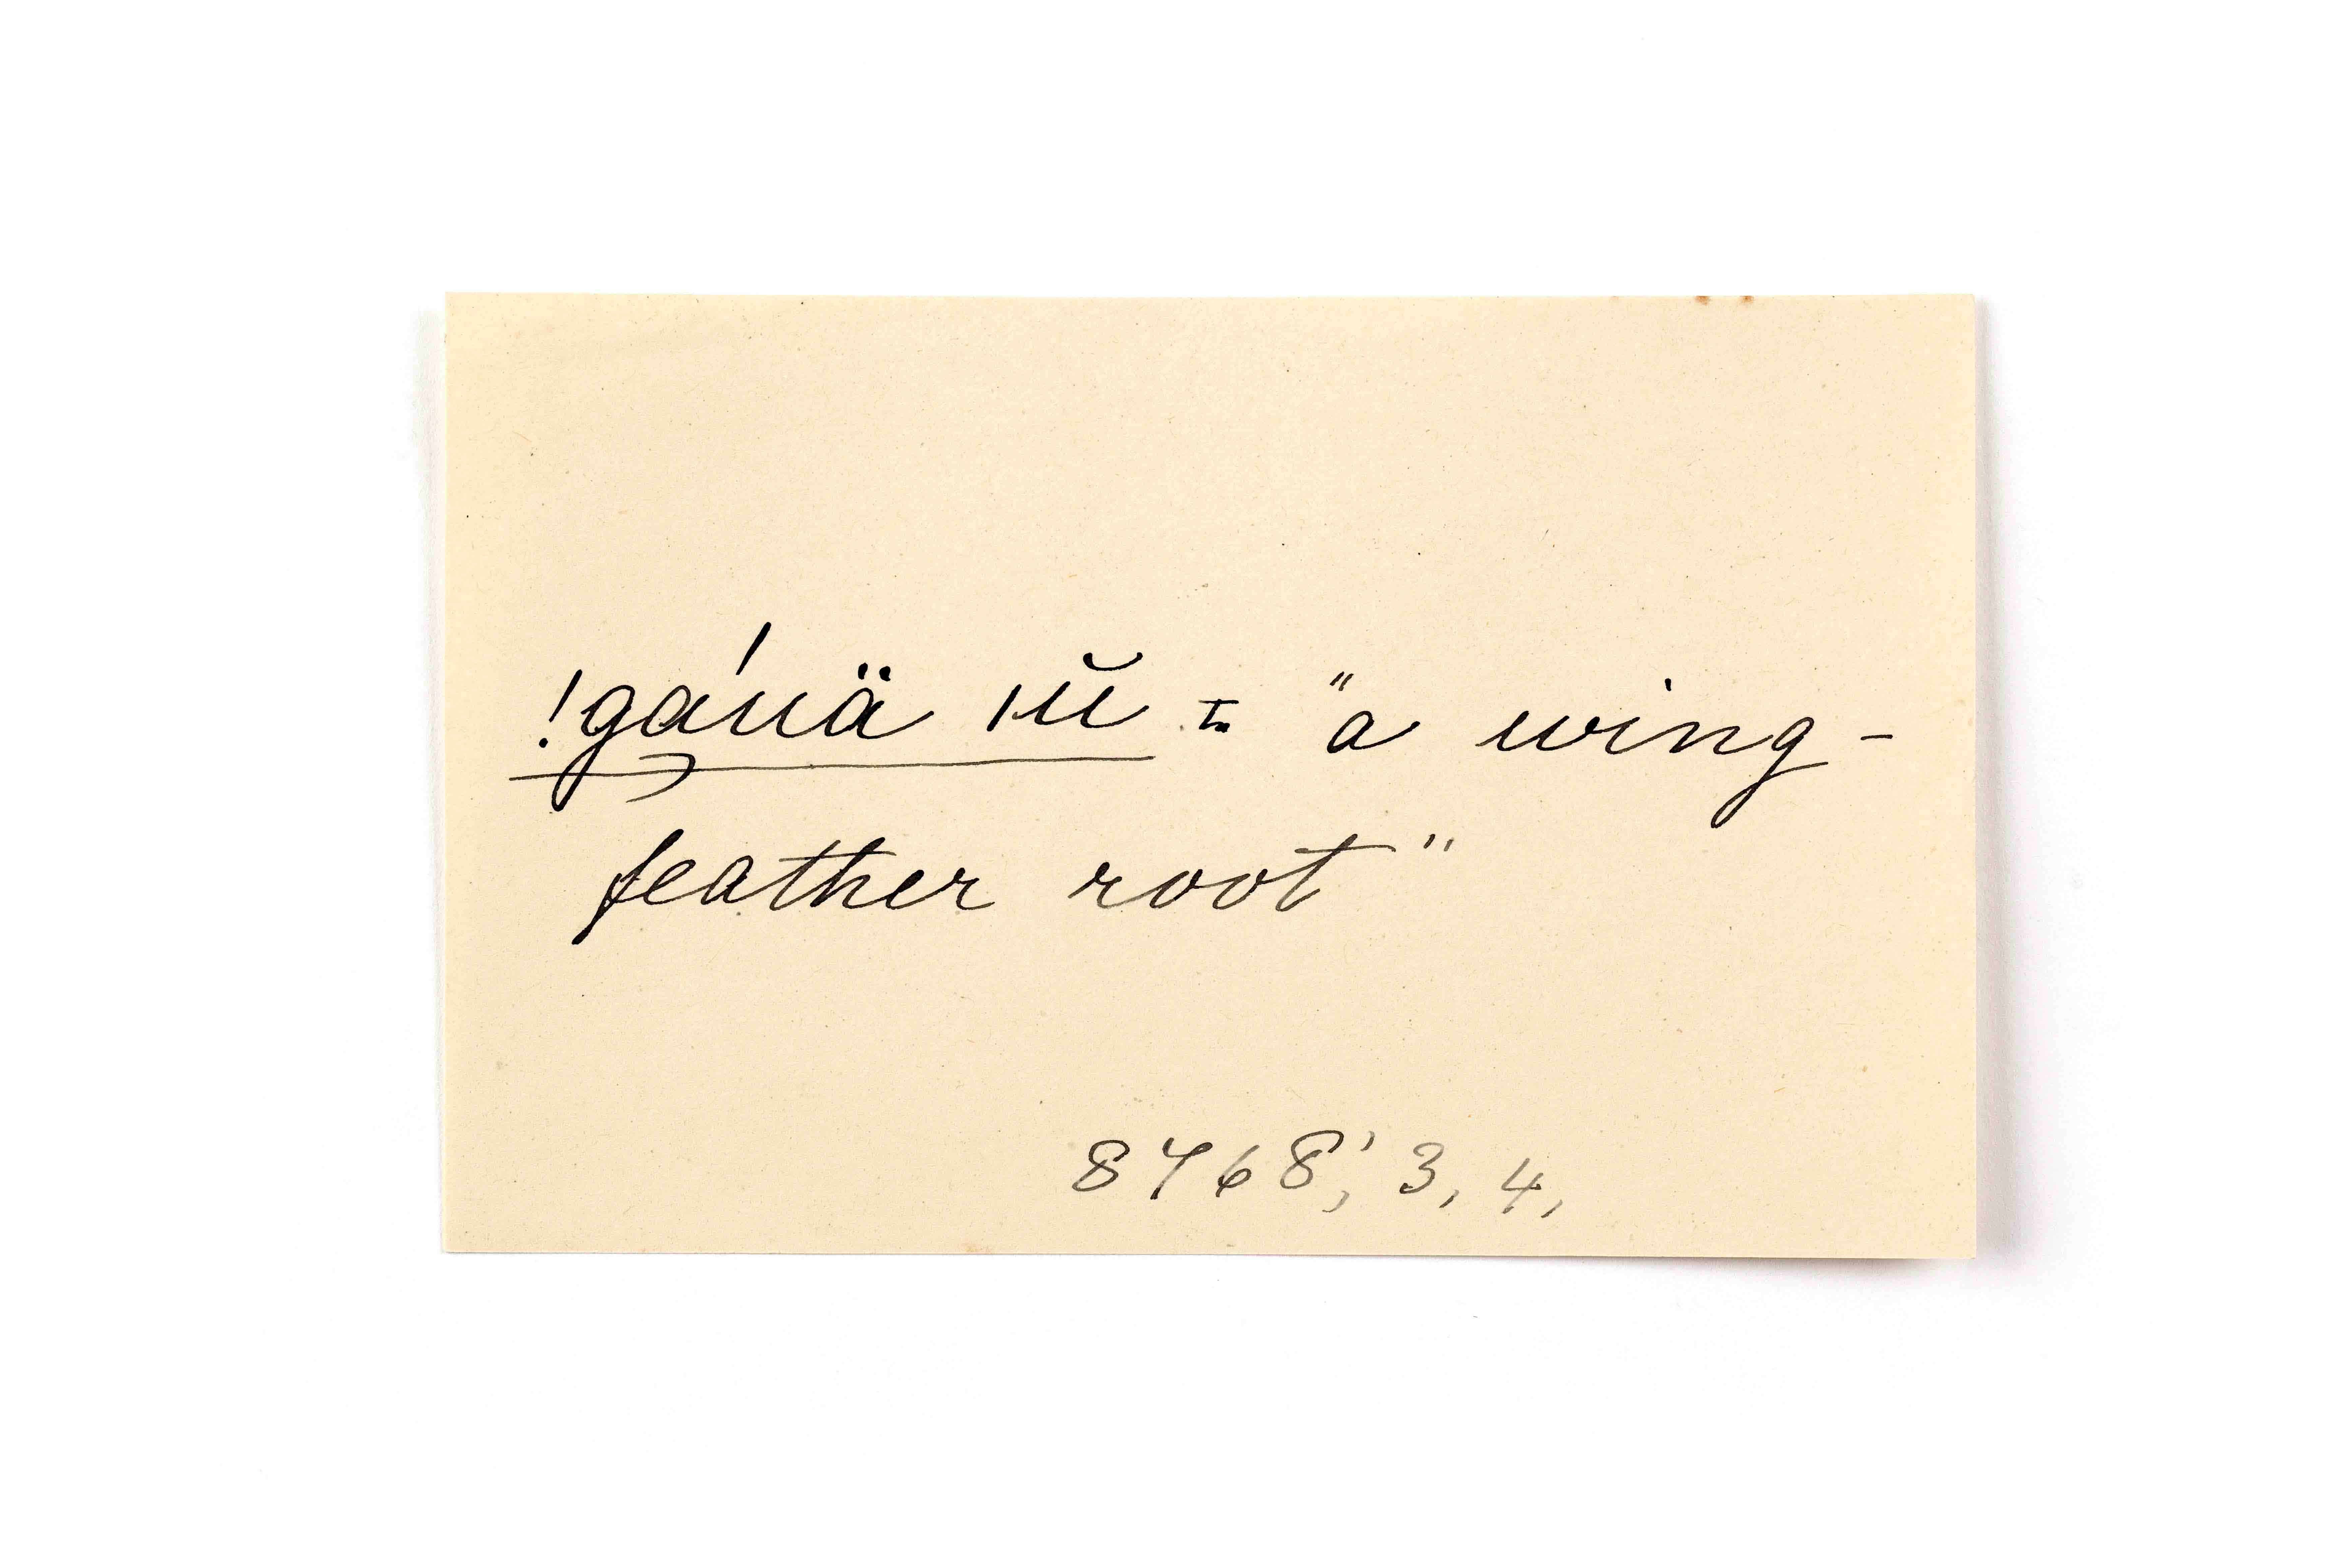 !gáuä ıŭ = "a wing-
feather root"
8468,' 3, 4,